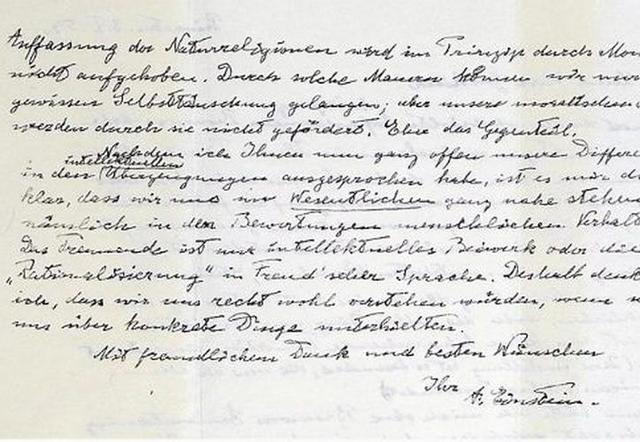 Auffassung der Naturreligionen wird im Prinzip durch Mon
nicht aufgehoben. Durch solche Mauern können wir nur
gewissen Selbsttäuschung gelangen; aber unsere moralischen
werden durch sie nicht gefördert. Eher das Gegenteil.
Nachdem ich Ihnen nun ganz offen unsere Differe
intellektuellen
in den Überzeugungen ausgesprochen habe, ist es mir d
klar, dass wir uns im Wesentlichen ganz nahe stehen
nämlich in den Bewertungen menschlichen Verhalt
Das Trennende ist nur intellektuelles Beiwerk oder die
„Rationalisierung“ in Freud'scher Sprache. Deshalb denk
ich, dass wir uns recht wohl verstehen würden, wenn w
uns über konkrete Dinge unterhielten.
Mit freundlichem Dank und besten Wünschen
Ihr
A. Einstein.